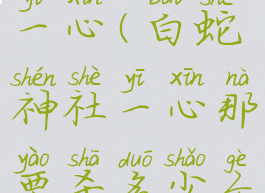 yī xīn bái shé
一心(白蛇
shén shè yī xīn nà
神社一心那
yào shā duō shǎo gè
要杀多少个